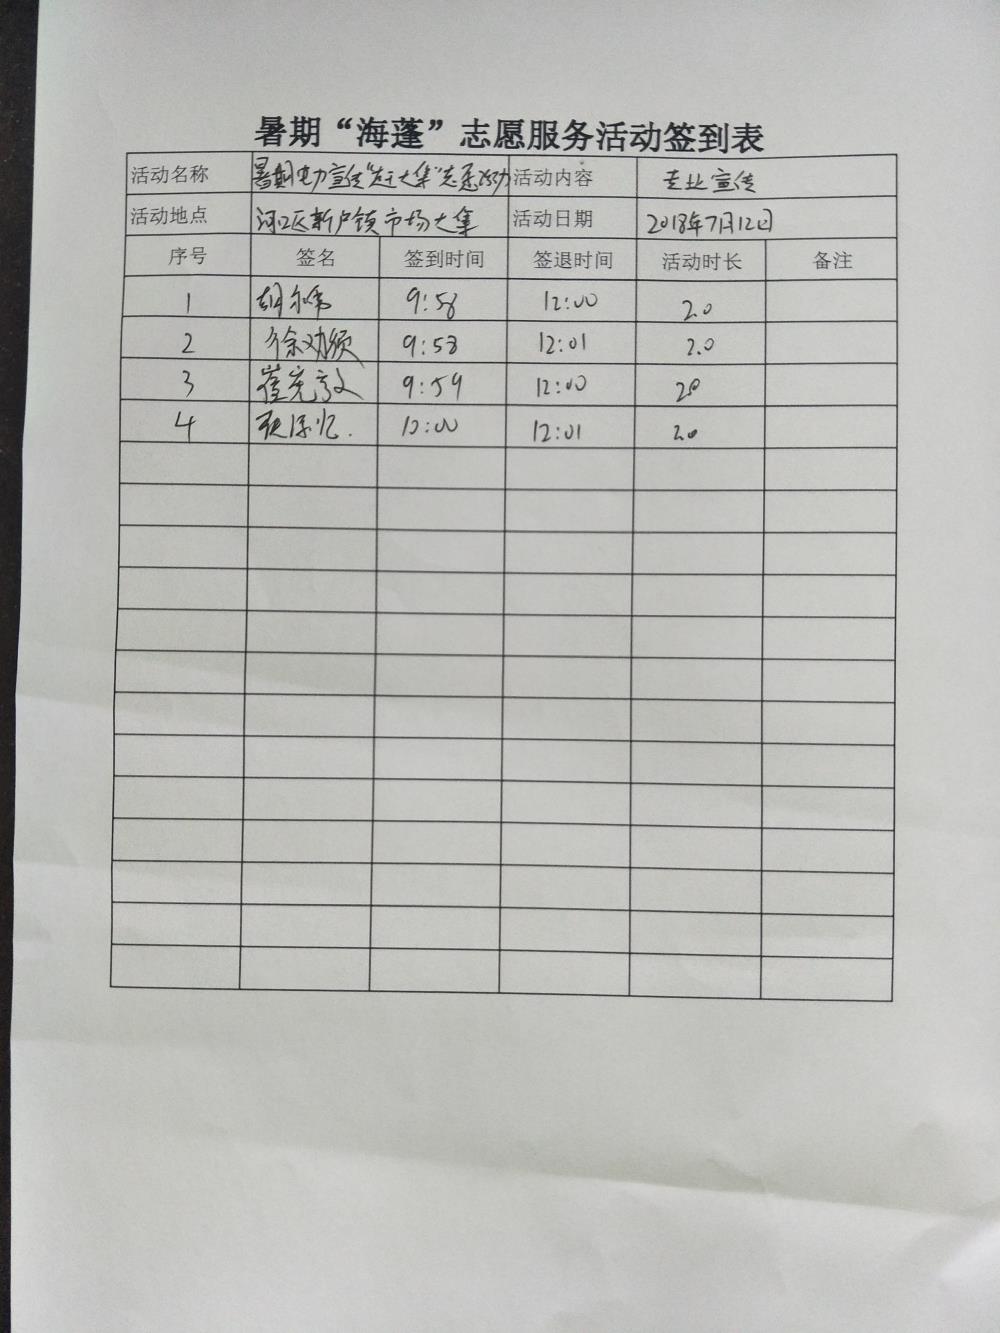 暑期“海蓬”志愿服务活动签到表
活动名称 暑期电力宣传“赶大集”志愿活动 活动内容 专业宣传
活动地点 河口区新户镇市场大集 活动日期 2018年7月12日
序号 签名 签到时间 签退时间 活动时长 备注
1 胡尔伟 9:58 12:00 2.0
2 徐 9:58 12:01 2.0
3 崔 9:59 12:00 2.0
4 10:00 12:01 2.0